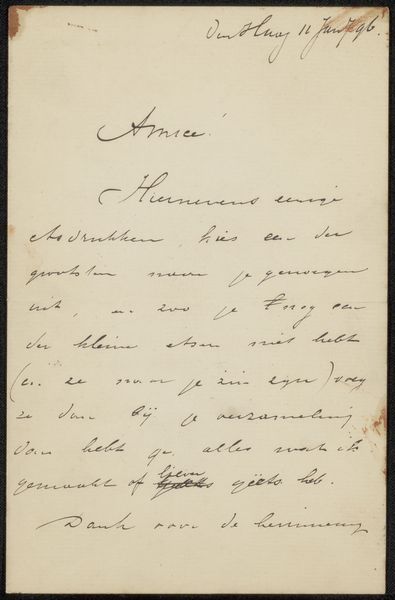 den Haag 11 Jan 96.
Amice!
Hiernevens eenige
afdrukken, kies een der
grootsten naar je genoegen
uit, en zoo je nog een
der kleine etsen niet hebt
(en ze naar je zin zyn) voeg
ze dan bij je verzameling
dan hebt ge alles wat ik
gemaakt of liever geëts heb.
Dank voor de herinnering